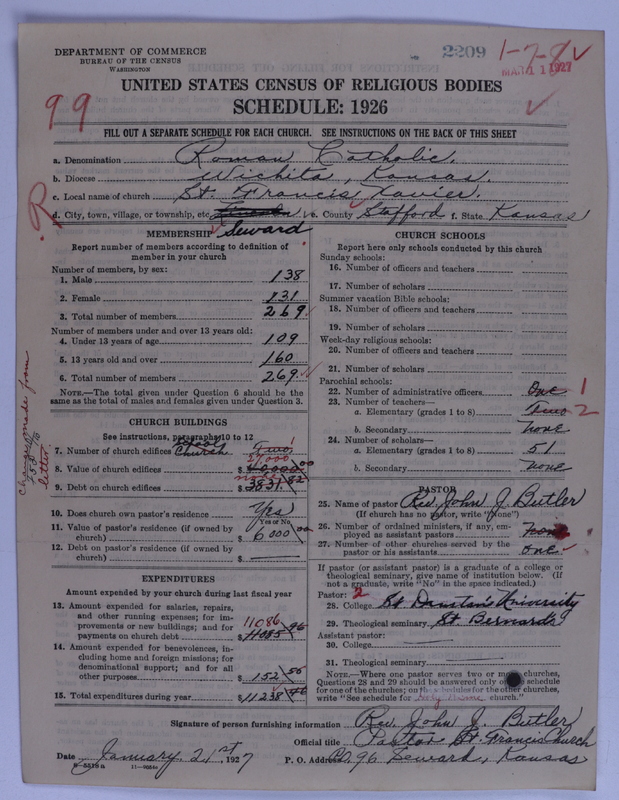 DEPARTMENT OF COMMERCE
BUREAU OF THE CENSUS
WASHINGTON
2209
1-7-8
MAR 1 1927
99
UNITED STATES CENSUS OF RELIGIOUS BODIES
SCHEDULE: 1926
FILL OUT A SEPARATE SCHEDULE FOR EACH CHURCH. SEE INSTRUCTIONS ON THE BACK OF THIS SHEET
a. Denomination Roman Catholic.
b. Diocese Wichita, Kansas.
c. Local name of church St. Francis Xavier.
R
d. City, town, village, or township, etc. e. County Stafford f. State Kansas
Seward
MEMBERSHIP
Report number of members according to definition of member in your church
Number of members, by sex:
1. Male 138
2. Female 131
3. Total number of members 269
Number of members under and over 13 years old:
4. Under 13 years of age 109
5. 13 years old and over 160
6. Total number of members 269
NOTE.—The total given under Question 6 should be the same as the total of males and females given under Question 3.
changes made from
letter
CHURCH BUILDINGS
See instructions, paragraphs 10 to 12
7. Number of church edifices School Church Two 1
8. Value of church edifices $
9. Debt on church edifices $ 3831.82
10. Does church own pastor's residence Yes
Yes or No
11. Value of pastor's residence (if owned by church) $ 6000 00
12. Debt on pastor's residence (if owned by church) $
EXPENDITURES
Amount expended by your church during last fiscal year
13. Amount expended for salaries, repairs, and other running expenses; for improvements or new buildings; and for payments on church debt $ 11085 11086
14. Amount expended for benevolences, including home and foreign missions; for denominational support; and for all other purposes $ 152
15. Total expenditures during year $ 11238
CHURCH SCHOOLS
Report here only schools conducted by this church
Sunday schools:
16. Number of officers and teachers
17. Number of scholars
Summer vacation Bible schools:
18. Number of officers and teachers
19. Number of scholars
Week-day religious schools:
20. Number of officers and teachers
21. Number of scholars
Parochial schools:
22. Number of administrative officers One 1
23. Number of teachers—
a. Elementary (grades 1 to 8) Two 2
b. Secondary none
24. Number of scholars—
a. Elementary (grades 1 to 8) 51
b. Secondary none
PASTOR
25. Name of pastor Rev. John J. Butler
(If church has no pastor, write "none")
26. Number of ordained ministers, if any, employed as assistant pastors none
27. Number of other churches served by the pastor or his assistants one
If pastor (or assistant pastor) is a graduate of a college or theological seminary, give name of institution below. (If not a graduate, write "No" in the space indicated.)
Pastor: 2
28. College St Dunstan's University
29. Theological seminary St Bernard's
Assistant pastor:
30. College
31. Theological seminary
NOTE.—Where one pastor serves two or more churches, Questions 28 and 29 should be answered only on the schedule for one of the churches; on the schedules for the other churches, write "See schedule for Holy Name church."
Signature of person furnishing information Rev. John J. Butler
Official title Pastor St. Francis Church
Date January 21st, 1927 P. O. Address 96 Seward, Kansas